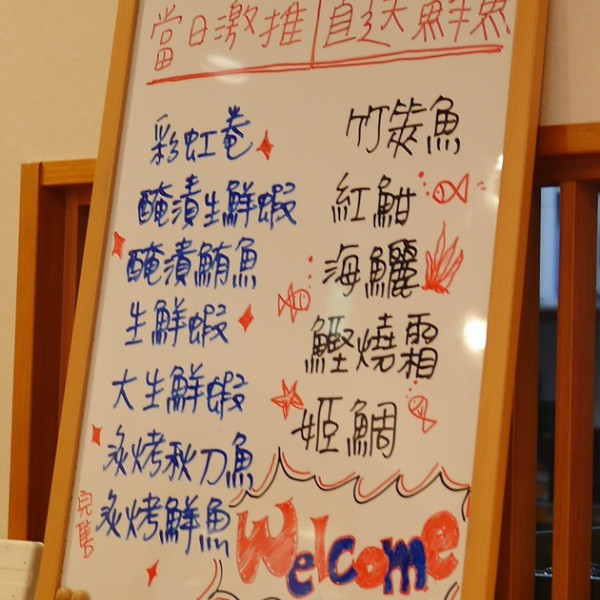 當日激推 直送鮮魚
彩虹卷
醃漬生鮮蝦
醃漬鮪魚
生鮮蝦
大生鮮蝦
炙烤秋刀魚
炙烤鮮魚
完售
竹筴魚
紅魽
海鱺
鰹燒霜
姬鯛
Welcome